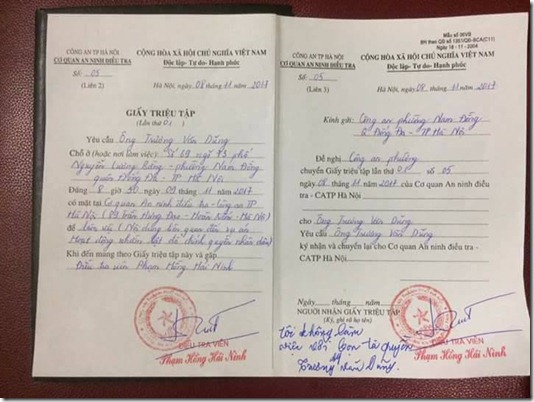 CÔNG AN TP HÀ NỘI
CƠ QUAN AN NINH ĐIỀU TRA
Số: 05
(Liên 2)
CỘNG HÒA XÃ HỘI CHỦ NGHĨA VIỆT NAM
Độc lập- Tự do- Hạnh phúc
Hà Nội, ngày 08 tháng 11 năm 2017
GIẤY TRIỆU TẬP
(Lần thứ 01)
Yêu cầu Ông Trương Văn Dũng
Chỗ ở (hoặc nơi làm việc): Số 69 ngõ 73 phố
Nguyễn Lương Bằng - phường Nam Đồng
quận Đống Đa - TP Hà Nội
Đúng 8 giờ 30 ngày 09 tháng 11 năm 2017
có mặt tại Cơ quan An ninh điều tra - Công an TP
Hà Nội (89 Trần Hưng Đạo - Hoàn Kiếm - Hà Nội)
để làm việc (Nội dung liên quan đến vụ án
Hoạt động nhằm lật đổ chính quyền nhân dân)
Khi đến mang theo Giấy triệu tập này và gặp
Điều tra viên Phạm Hồng Hải Ninh
ĐIỀU TRA VIÊN
Phạm Hồng Hải Ninh
Mẫu số 06VB
BH theo QĐ số 1351/QĐ-BCA(C11)
Ngày 18 - 11 - 2004
CÔNG AN TP HÀ NỘI
CƠ QUAN AN NINH ĐIỀU TRA
Số: 05
(Liên 3)
CỘNG HÒA XÃ HỘI CHỦ NGHĨA VIỆT NAM
Độc lập- Tự do- Hạnh phúc
Hà Nội, ngày 08 tháng 11 năm 2017
Kính gửi: Công an phường Nam Đồng
Q Đống Đa - TP Hà Nội
Đề nghị Công an phường
chuyển Giấy triệu tập lần thứ 01 số 05
ngày 08 tháng 11 năm 2017 của Cơ quan An ninh điều
tra - CATP Hà Nội
cho Ông Trương Văn Dũng
Yêu cầu Ông Trương Văn Dũng
ký nhận và chuyển lại cho Cơ quan An ninh điều tra -
CATP Hà Nội.
Ngày tháng năm
NGƯỜI NHẬN GIẤY TRIỆU TẬP
(Ký, ghi rõ họ tên)
Tôi không làm
việc với bọn tà quyền
Trương Văn Dũng.
ĐIỀU TRA VIÊN
Phạm Hồng Hải Ninh